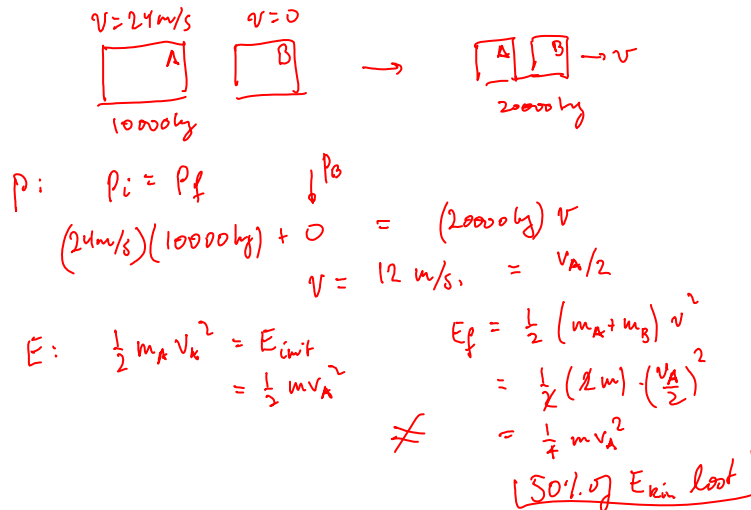 v=24m/s v=0
A B → A B → v
10000kg 20000kg
p: pi = pf ↓PB
(24m/s)(10000kg) + 0 = (20000kg) v
v = 12 m/s. = vA/2
E: 1/2 mA vA² = Einit Ef = 1/2 (mA+mB) v²
= 1/2 mvA² = 1/2 (2m)·(vA/2)²
≠ = 1/4 mvA²
50% of Ekin lost